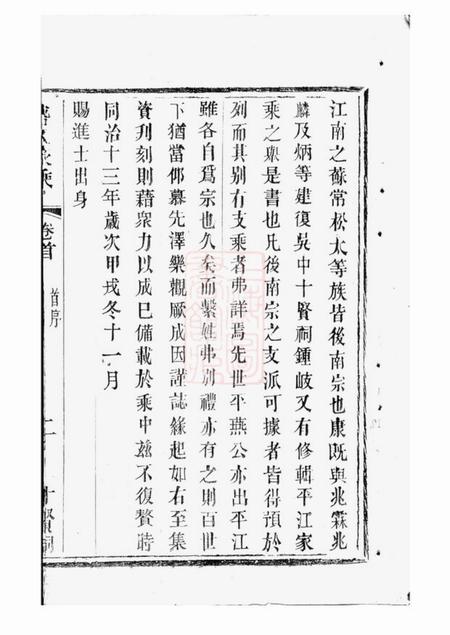 江南之蘇常松太等族皆後南宗也康既與兆霖兆
麟及炳等建復吳中十賢祠鍾岐又有修輯平江家
乘之舉是書也凡後南宗之支派可據者皆得預於
列而其別有支乘者弗詳焉先世平燕公亦出平江
雖各自爲宗也久矣而繫姓弗別禮亦有之則百世
下猶當仰慕先澤樂觀厥成因謹誌緣起如右至集
資刋刻則藉衆力以成巳備載於乘中兹不復贅時
同治十三年歲次甲戌冬十一月
賜進士出身
家乘
卷首
首序
二
十賢祠